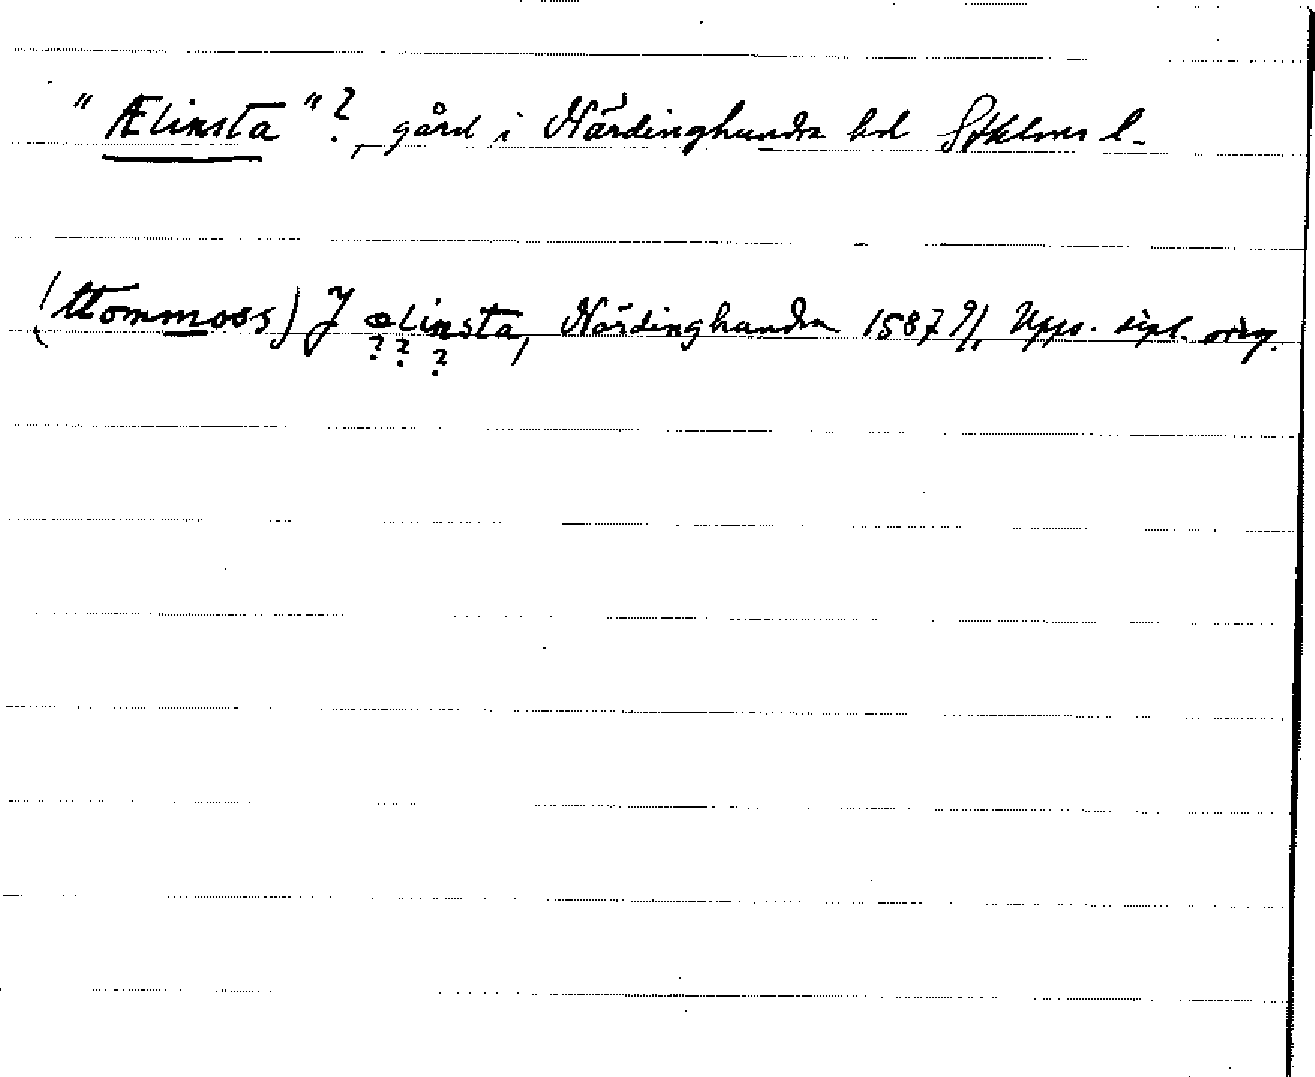 "Ælinsta"?, gård i Närdinghundra hd Sthlms l.
(Ttommoss) J ælinsta, Närdinghundra 1587 9/1 Upps. dipl. orig.
? ? ?